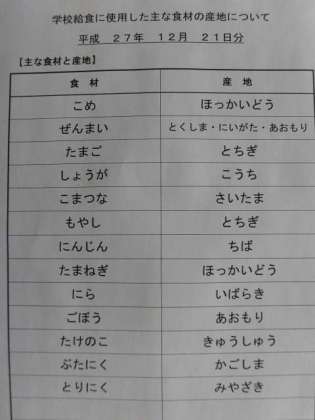 学校給食に使用した主な食材の産地について
平成 27年 12月 21日分
【主な食材と産地】
食 材 産 地
こめ ほっかいどう
ぜんまい とくしま・にいがた・あおもり
たまご とちぎ
しょうが こうち
こまつな さいたま
もやし とちぎ
にんじん ちば
たまねぎ ほっかいどう
にら いばらき
ごぼう あおもり
たけのこ きゅうしゅう
ぶたにく かごしま
とりにく みやざき